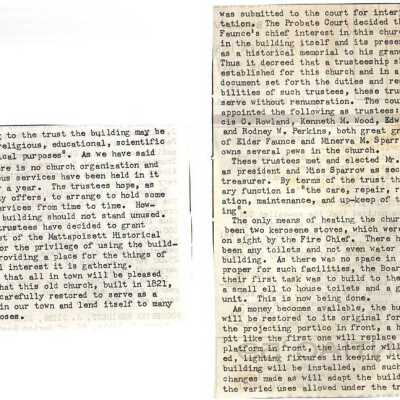 g to the trust the building may be
religious, educational, scientific
cal purposes". As we have said
ere is no church organization and
ous services have been held in it
r a year. The trustees hope, as
y offers, to arrange to hold some
services from time to time. How-
building should not stand unused.
trustees have decided to grant
st of the Mattapoisett Historical
or the privilege of using the build-
roviding a place for the things of
l interest it is gathering.
that all in town will be pleased
hat this old church, built in 1821,
carefully restored to serve as a
in our town and lend itself to many
poses.
was submitted to the court for inter
tation. The Probate Court decided th
Faunce's chief interest in this churc
in the building itself and its prese
as a historical memorial to his gran
Thus it decreed that a trusteeship sh
established for this church and in a
document set forth the duties and re
bilities of such trustees, these tru
serve without remuneration. The cou
appointed the following as trustees:
cis O. Rowland, Kenneth M. Wood, Edw
and Rodney W. Perkins, both great gr
of Elder Faunce and Minerva M. Sparr
owns several pews in the church.
These trustees met and elected Mr.
as president and Miss Sparrow as sec
treasurer. By terms of the trust th
ary function is "the care, repair, r
ation, maintenance, and up-keep of t
ing".
The only means of heating the churc
been two kerosene stoves, which were
on sight by the Fire Chief. There h
been any toilets and not even water
building. As there was no space in
proper for such facilities, the Boar
their first task was to build to tha
a small ell to house toilets and a g
unit. This is now being done.
As money becomes available, the bu
will be restored to its original for
the projecting portico in front, a h
pit like the first one will replace
platform in front, the interior will
ed, lighting fixtures in keeping wit
building will be installed, and such
changes made as will adapt the build
the varied uses allowed under the tr